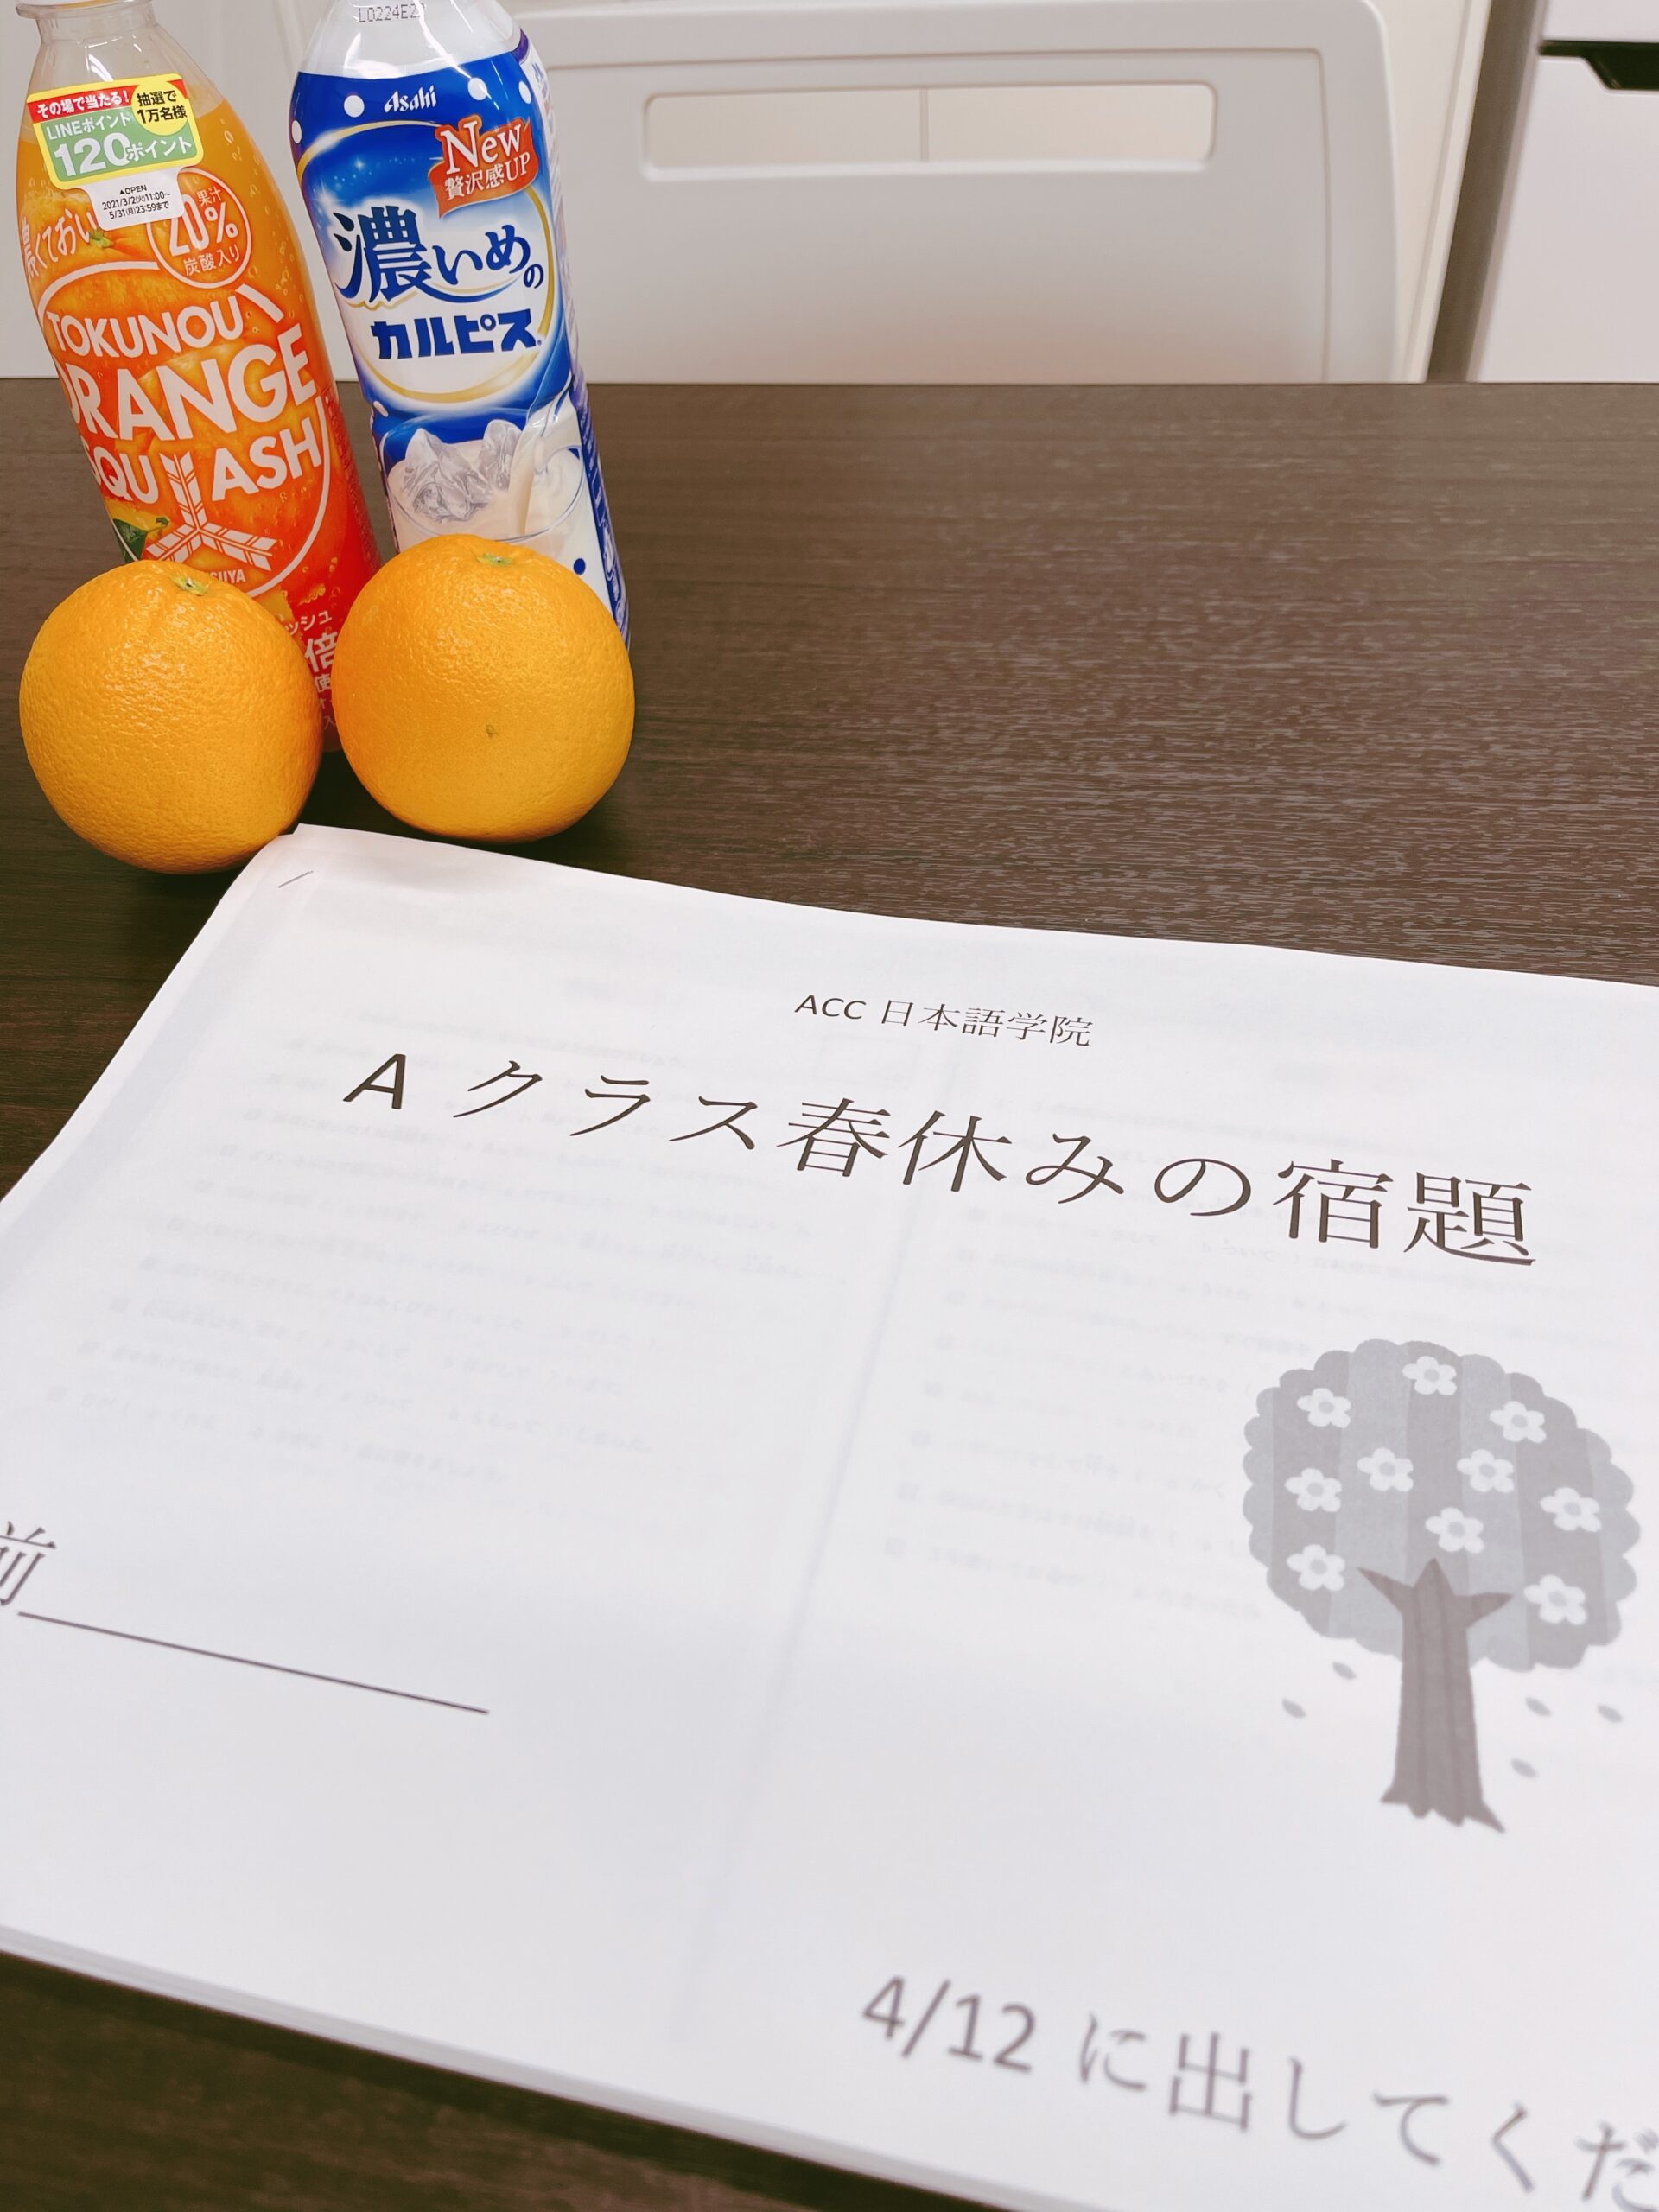 その場で当たる!
抽選で
1万名様
LINEポイント
120ポイント
▲OPEN
2021/3/2(火)11:00~
5/31(月)23:59まで
果汁
20%
炭酸入り
TOKUNOU
ORANGE
SQUASH
倍
L0224E2
Asahi
New
贅沢感UP
濃いめの
カルピス
ACC 日本語学院
A クラス春休みの宿題
前
4/12 に出してくだ